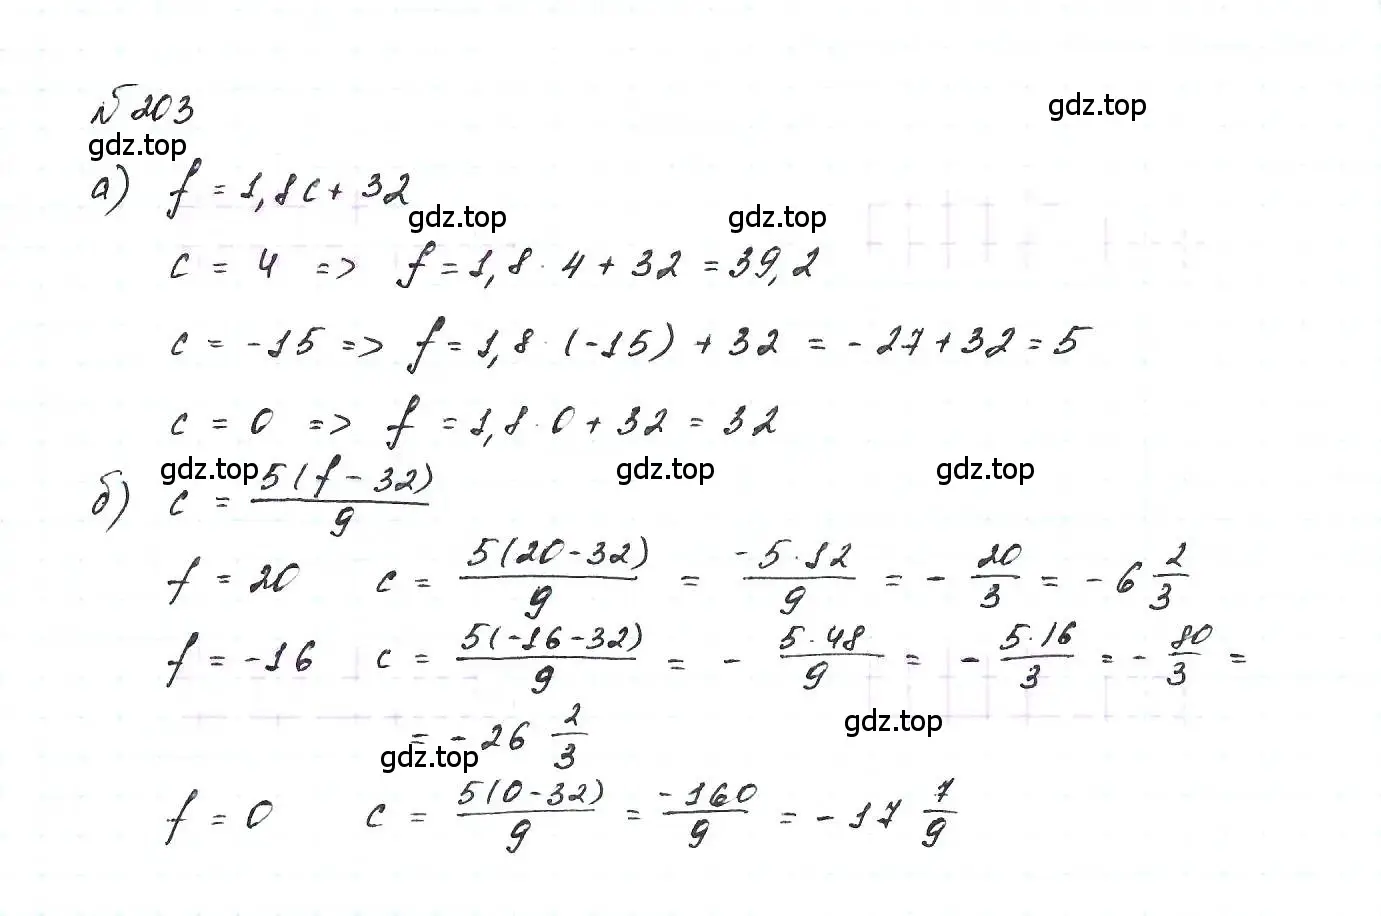 №203
gdz.top
gdz.top
а) f = 1,8c + 32
gdz.top
gdz.top
c = 4 => f = 1,8 · 4 + 32 = 39,2
c = -15 => f = 1,8 · (-15) + 32 = -27 + 32 = 5
c = 0 => f = 1,8 · 0 + 32 = 32
gdz.top
gdz.top
gdz.top
б) c = 5(f - 32)/9
f = 20 c = 5(20-32)/9 = -5·12/9 = - 20/3 = -6 2/3
f = -16 c = 5(-16-32)/9 = - 5·48/9 = - 5·16/3 = - 80/3 =
= -26 2/3
gdz.top
gdz.top
f = 0 c = 5(0-32)/9 = -160/9 = -17 7/9